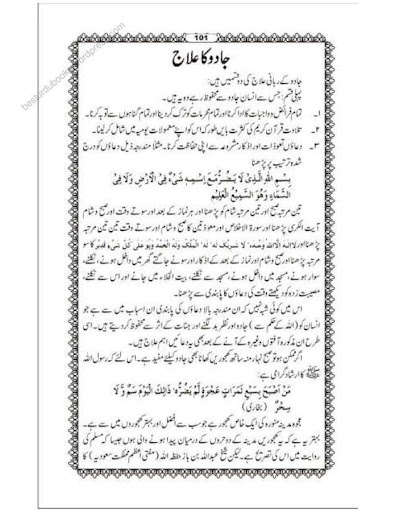 101
جادو کا علاج
جادو کے ربانی علاج کی دو قسمیں ہیں:
پہلی قسم: جس سے انسان جادو سے محفوظ رہے وہ یہ ہیں۔
۱۔ تمام فرائض و واجبات کا ادا کرنا اور تمام محرمات کو ترک کر دینا اور تمام گناہوں سے توبہ کرنا۔
۲۔ تلاوت قرآن کریم کی کثرت بایں طور کہ اس کو اپنے معمولات یومیہ میں شامل کر لینا۔
۳۔ دعاؤں تعوذات اور اذکار مشروعہ سے اپنی حفاظت کرنا۔ مثلاً مندرجہ ذیل دعاؤں کو درج
شدہ ترتیب پر پڑھنا
بِسْمِ اللهِ الَّذِىْ لَا يَضُرُّ مَعَ اسْمِهِ شَىْءٌ فِى الْاَرْضِ وَلَا فِى
السَّمَاءِ وَهُوَ السَّمِيْعُ الْعَلِيْمُ
تین مرتبہ صبح اور تین مرتبہ شام کو پڑھنا اور ہر نماز کے بعد اور سوتے وقت اور صبح و شام
آیت الکرسی پڑھنا اور سورۃ الاخلاص اور معوذتین کا صبح و شام اور سوتے وقت تین تین مرتبہ
پڑھنا اور لا الہ الا اللہ وحدہ، لا شریک لہ، لہ الملک ولہ الحمد وہو علی کل شیء قدیر کا سو
مرتبہ پڑھنا اور صبح و شام اور نماز کے بعد کے اذکار اور سونے جاگنے گھر میں داخل ہونے، نکلنے،
سوار ہونے، مسجد میں داخل ہونے، مسجد سے نکلنے، بیت الخلاء میں جانے اور اس سے نکلنے،
مصیبت زدہ کو دیکھتے وقت کی دعاؤں کا پابندی سے پڑھنا۔
اس میں کوئی شبہ نہیں کہ ان مندرجہ بالا دعاؤں کی پابندی ان اسباب میں سے ہے جو
انسان کو (اللہ کے حکم سے) جادو اور نظر بد لگنے اور جنات کے اثر سے محفوظ کر دیتے ہیں۔ اسی
طرح ان مذکورہ آفتوں وغیرہ کے آنے کے بعد بھی یہ دعائیں اہم علاج ہیں۔
اگر ممکن ہو تو صبح نہار منہ سات کھجوریں کھانا بھی جادو کیلئے مفید ہے۔ اس لئے کہ رسول اللہ
ﷺ کا ارشاد گرامی ہے:
مَنْ اَصْبَحَ بِسَبْعِ تَمَرَاتٍ عَجْوَةٍ لَمْ يَضُرَّهُ ذَالِكَ الْيَوْمَ سَمٌّ وَّلَا
سِحْرٌ (بخاری)
عجوہ مدینہ منورہ کی ایک خاص کھجور ہے جو سب سے افضل اور بہتر کھجوروں میں سے ہے۔
بہتر یہ ہے کہ یہ کھجوریں مدینہ کے دو حروں کے درمیان پیدا ہونے والی ہوں جیسا کہ مسلم کی
روایت میں اس کی تصریح ہے۔ لیکن شیخ عبداللہ بن باز حفظہ اللہ (مفتی اعظم مملکت سعودیہ) کا